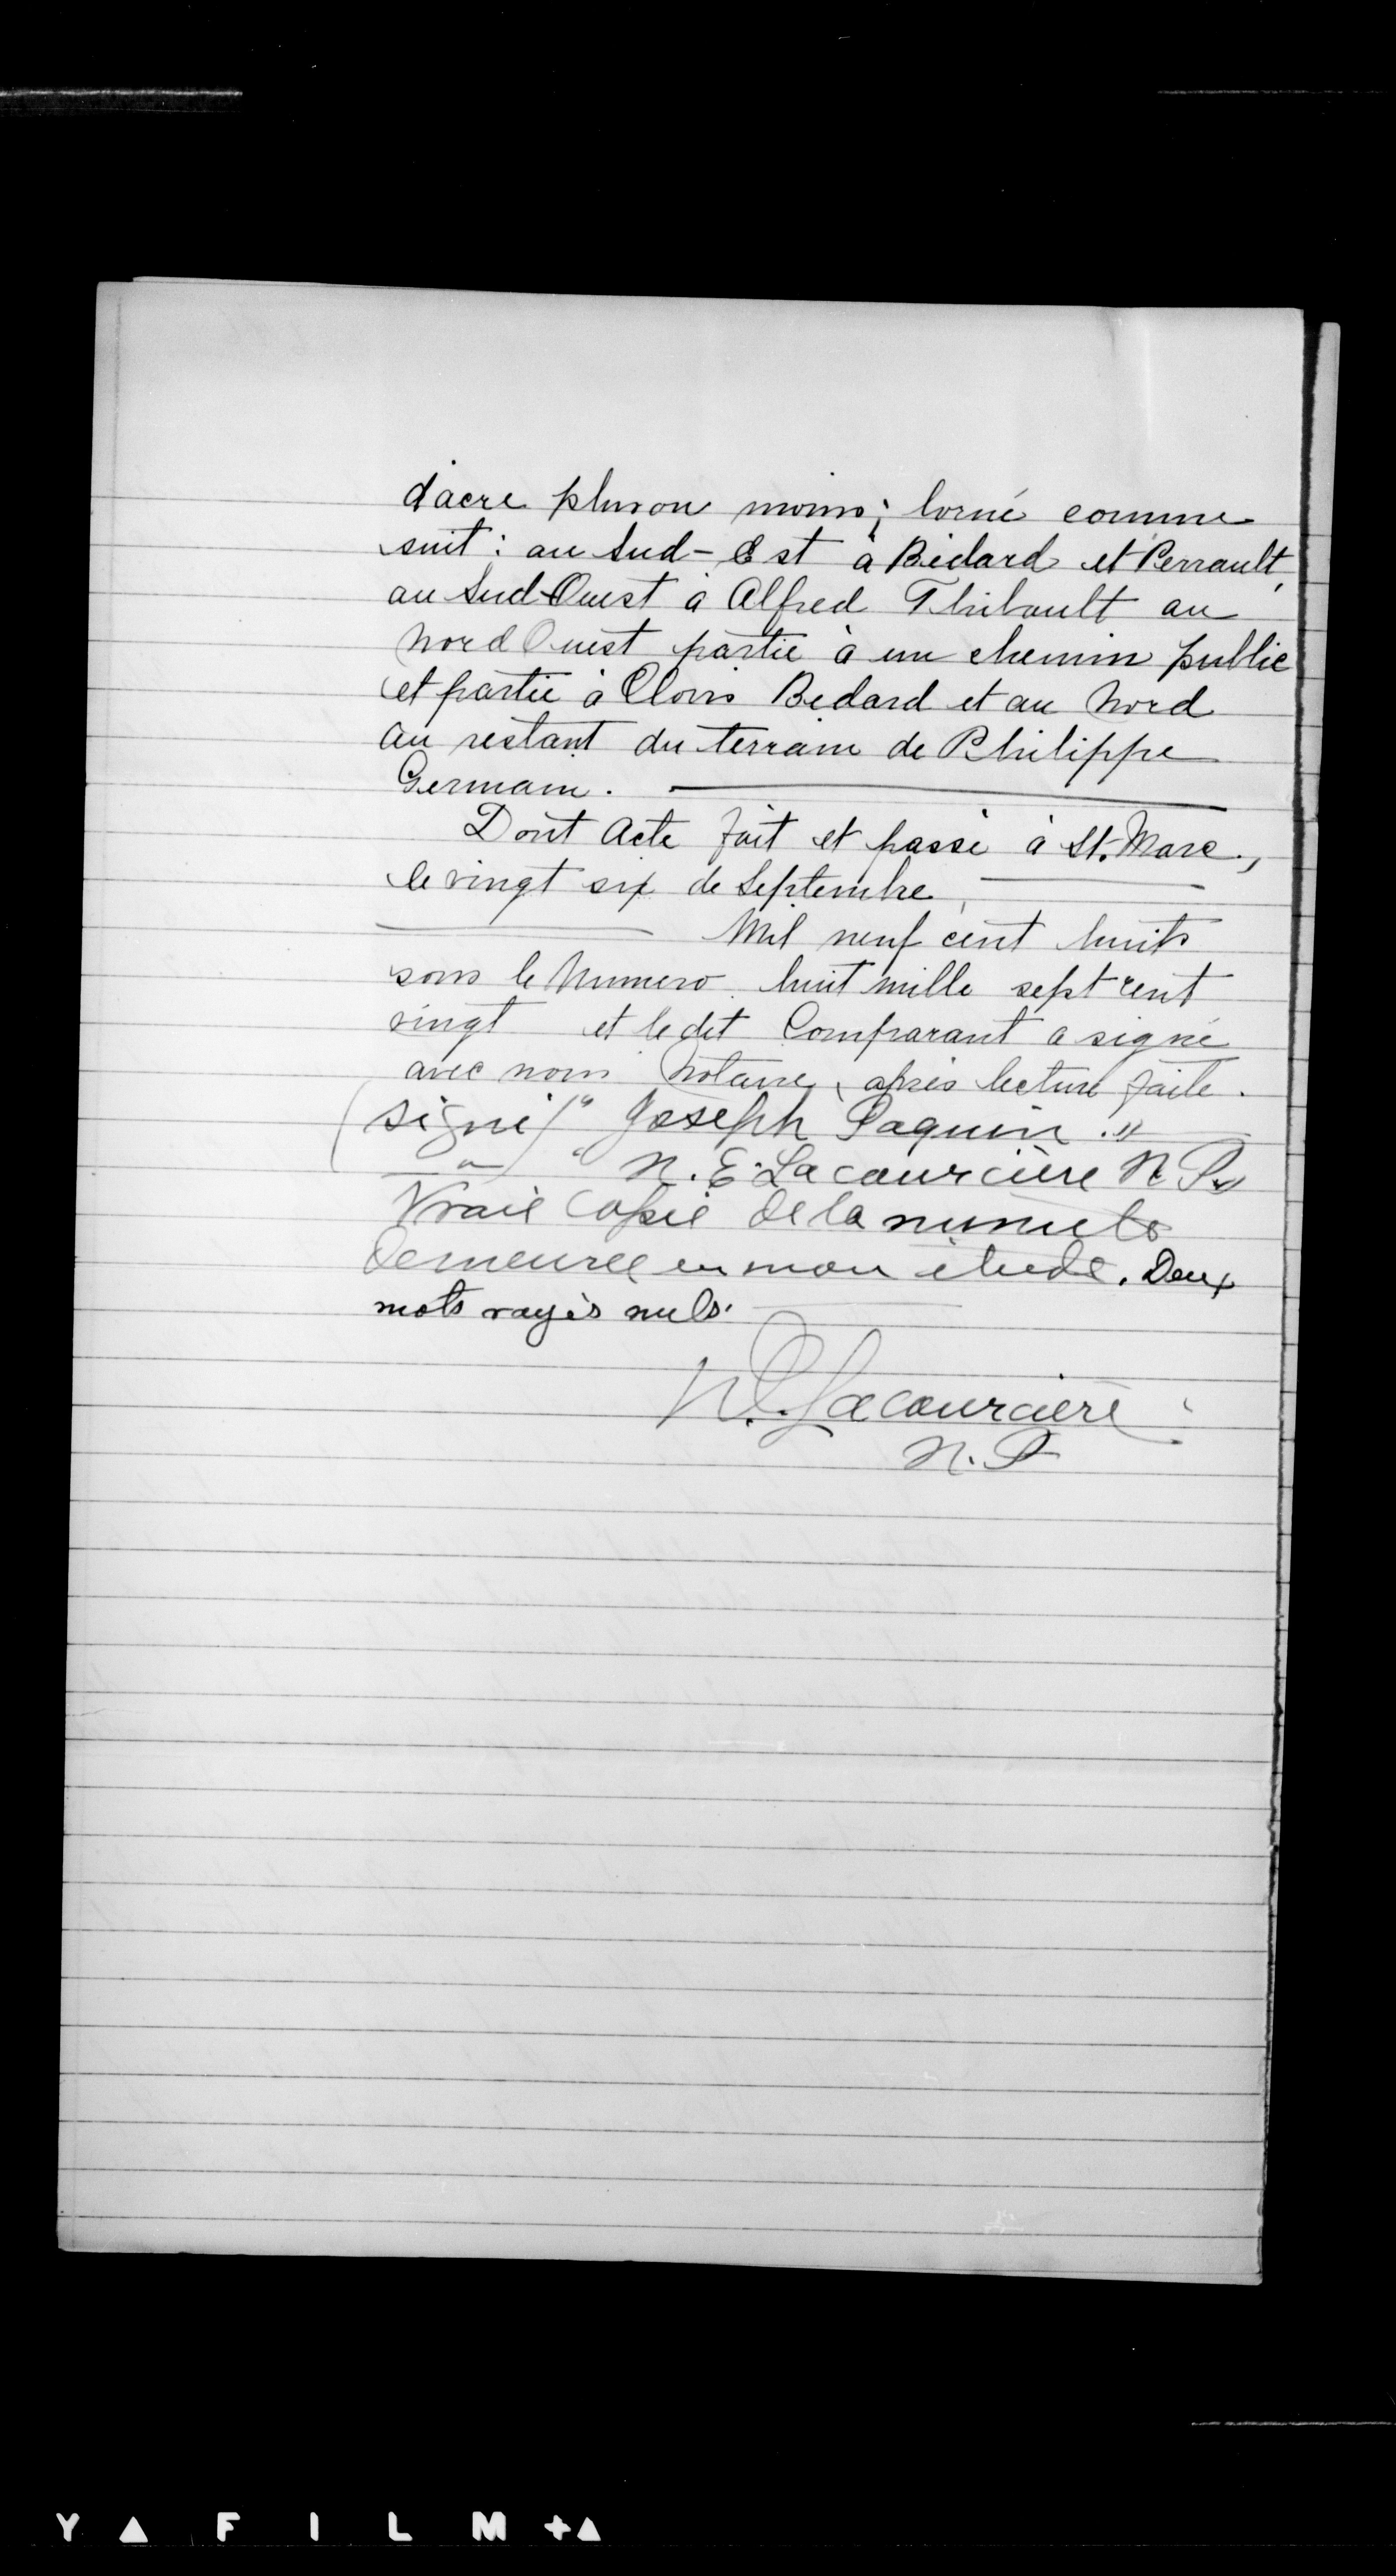 d'acre plus ou moins; borné comme
suit: au Sud-Est à Bédard et Perrault,
au Sud-Ouest à Alfred Thibault au
Nord Ouest partie à un chemin public
et partie à Clovis Bedard et au Nord
au restant du terrain de Philippe
Germain.
Dont Acte fait et passé à St. Marc,
le vingt six de Septembre,
Mil neuf cent huit
sous le Numero huit mille sept cent
vingt et le dit Comparant a signé
avec nous Notaire, après lecture faite.
(signé) "Joseph Paquin."
" N. E. Lacourcière N. P.
Vraie Copie de la minute
demeurée en mon étude. Deux
mots rayés nuls.
N. E. Lacourcière
N. P
Y ▲ F I L M +▲